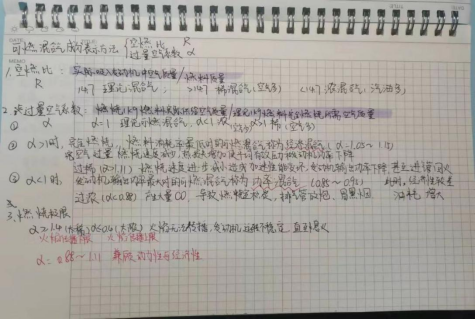 可燃混合气的表示方法 { 空燃比 R
过量空气系数 α
1. 空燃比: 实际吸入发动机中空气质量/燃料质量
R 14.7 理论混合气, >14.7 稀混合气(空气多) <14.7 浓混合气, 汽油多)
2. 过量空气系数: 燃烧1kg燃料实际供给空气质量/理论1kg燃料完全燃烧所需空气质量
① α α=1 理论可燃混合气, α<1 浓 α>1 稀(空气多)
② α>1时, 完全燃烧, 燃料消耗率最低时的混合气称为经济混合气 (α=1.05~1.11)
空气过量 燃烧速度减小, 热损失增加 发动机功率下降
过稀 (α>1.11) 燃烧速度进一步减小 发动机输出功率下降, 甚至进气管回火
③ α<1时, 发动机输出功率最大时的混合气称为功率混合气 (0.85~0.95) 此时, 经济性较差
过浓 (α<0.88) 产生大量CO, 导致燃烧 排气管放炮, 冒黑烟 油耗增大
3. 燃烧极限
α>1.4 (太稀) α≤0.4 (太浓) 火焰无法传播, 发动机运转不稳定, 直至熄火
火焰传播下限 火焰传播上限
α=0.85~1.11 兼顾动力性与经济性